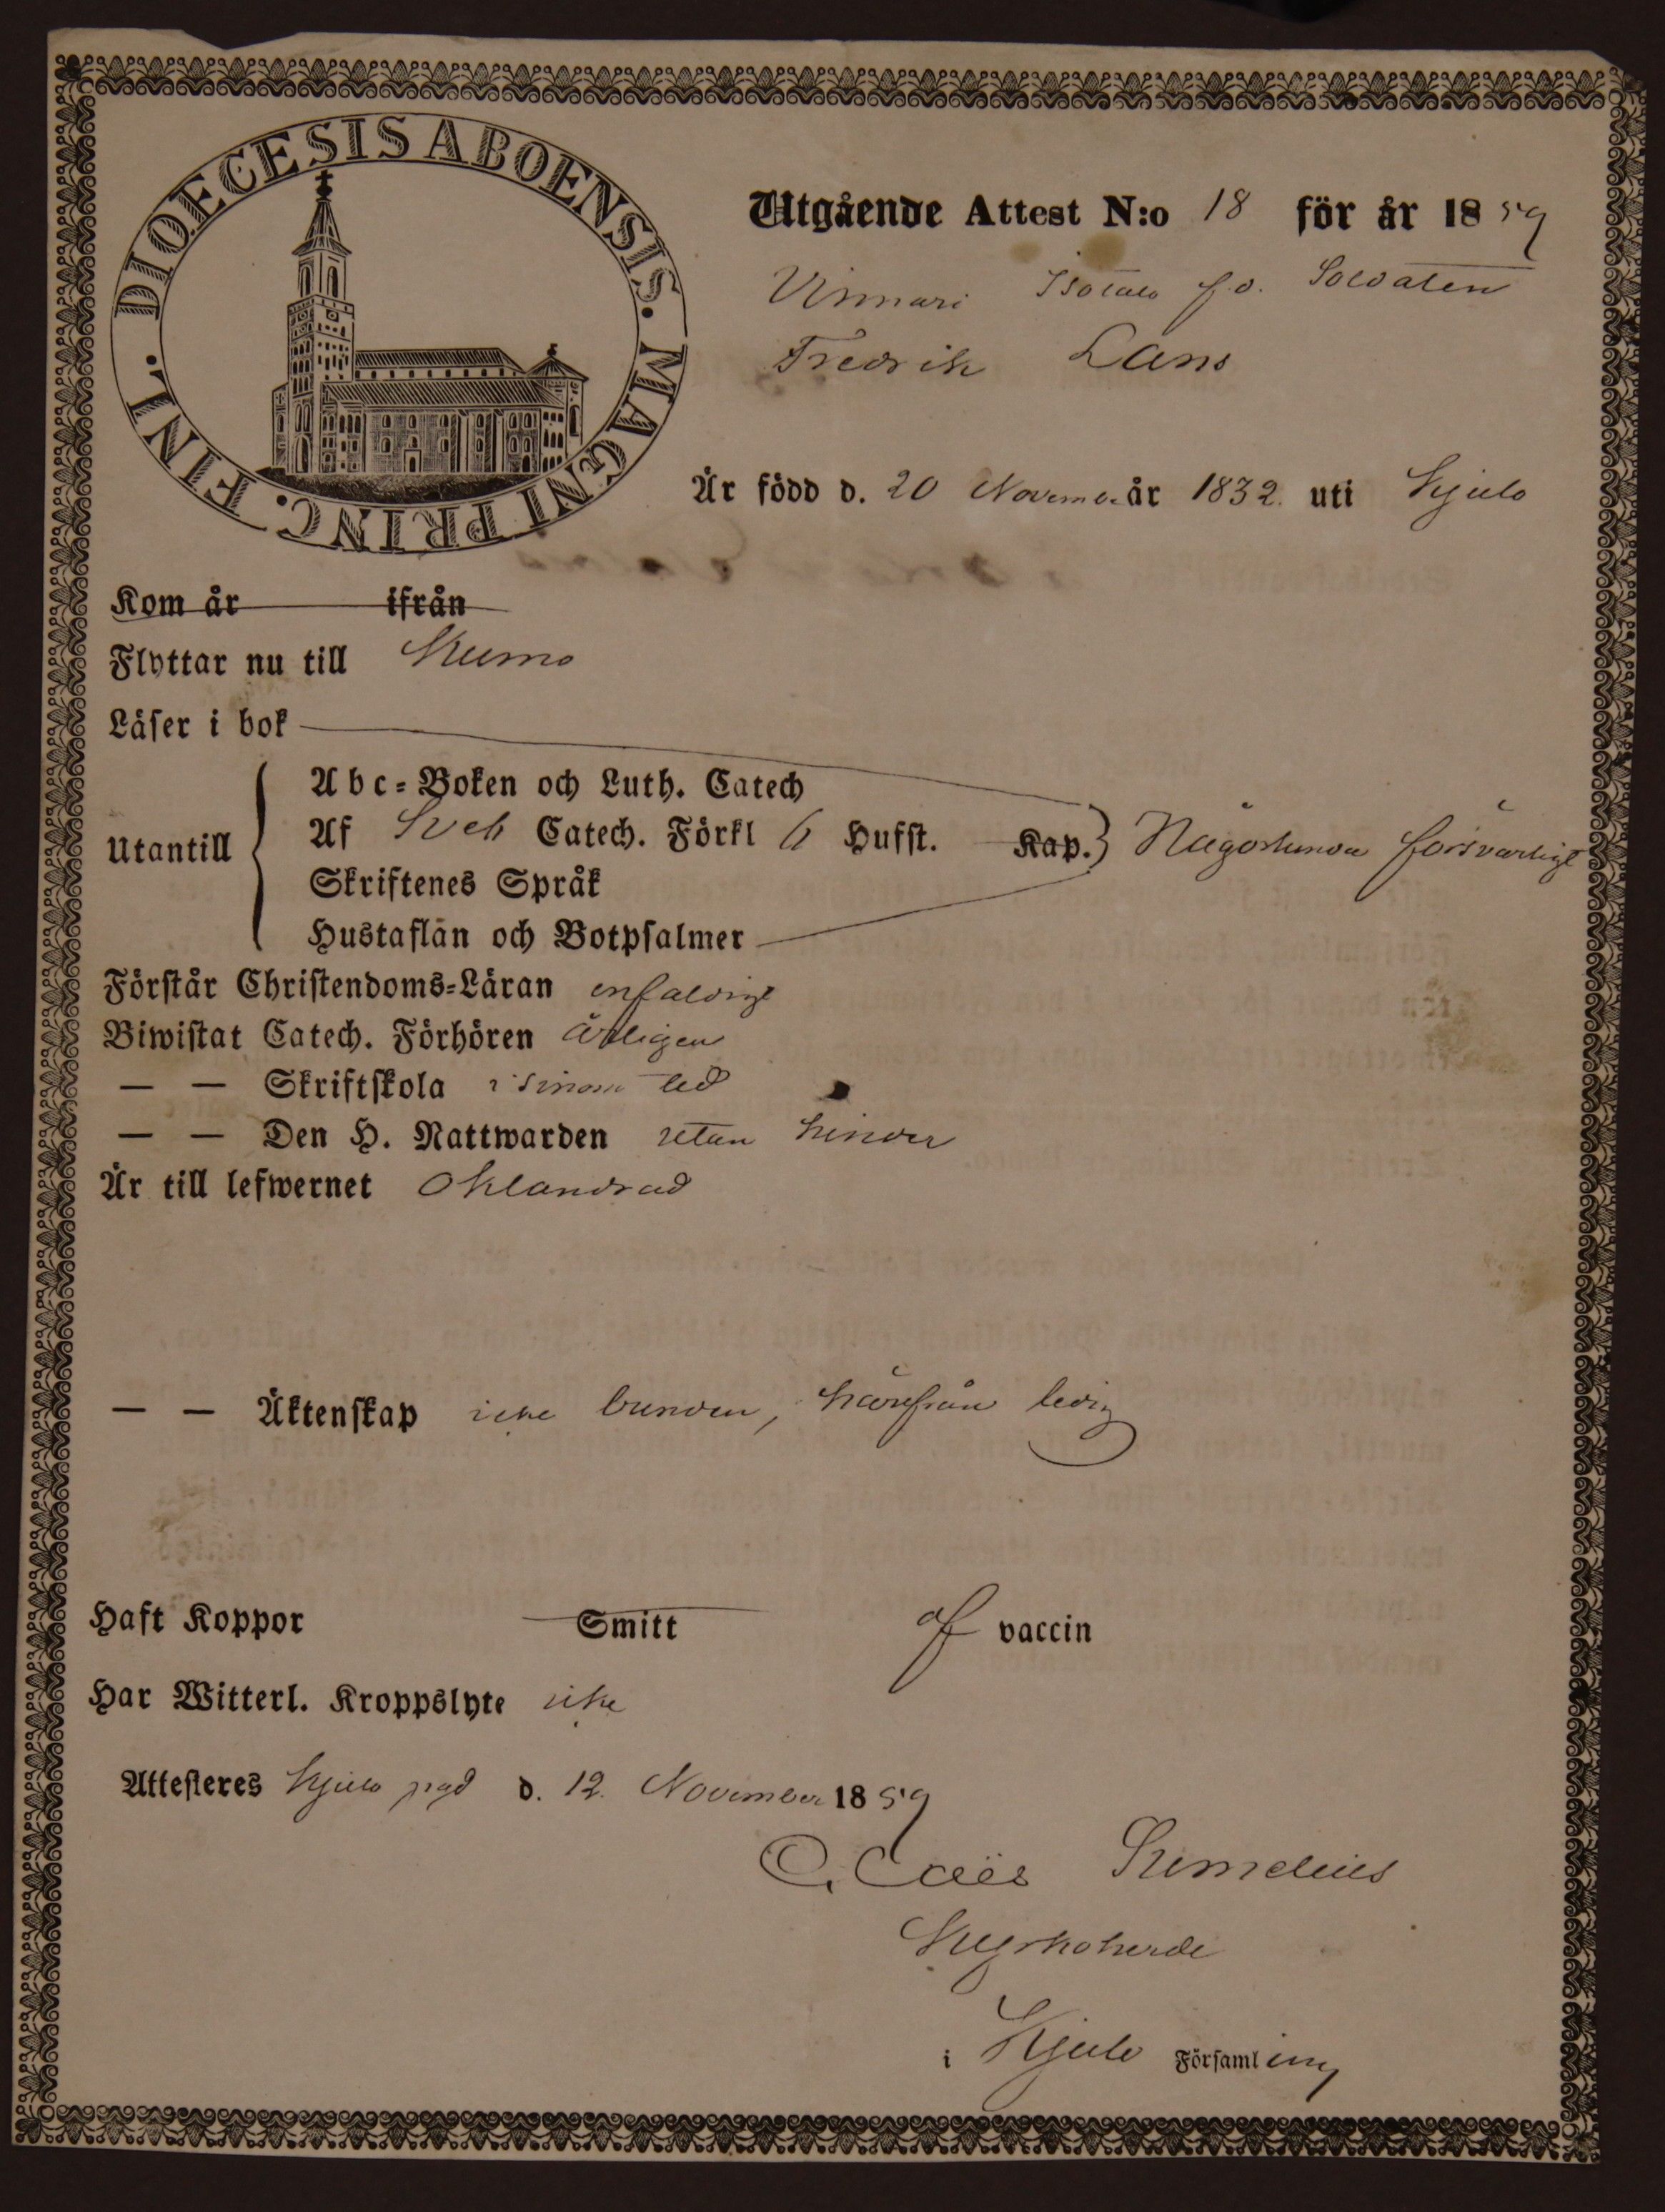 DIOECESIS ABOENSIS. MAGNI PRINC. FINL.
Utgående Attest N:o 18 för år 1859
Vinnari Isotalo f.d. Soldaten
Fredrik Lans
Är född d. 20 Novemb. år 1832. uti Kjulo
Kom år ifrån
Flyttar nu till Kumo
Läser i bok
Abc-Boken och Luth. Catech
Utantill Af Sveb Catech. Förkl 6 Hufst. Kap. Någorlunda försvarligt
Skriftenes Språk
Hustaflan och Botpsalmer
Förstår Christendoms-Läran enfaldigt
Biwistat Catech. Förhören årligen
— — Skriftskola i sinom tid
— — Den H. Nattwarden utan hinder
Är till lefwernet oklandrad
— — Äktenskap icke bunden, härifrån ledig
Haft Koppor Smitt af vaccin
Har Witterl. Kroppslyte icke
Attesteres Kjulo pgd d. 12. November 1859
C. Claës Sumelius
Kyrkoherde
i Kjulo Församling